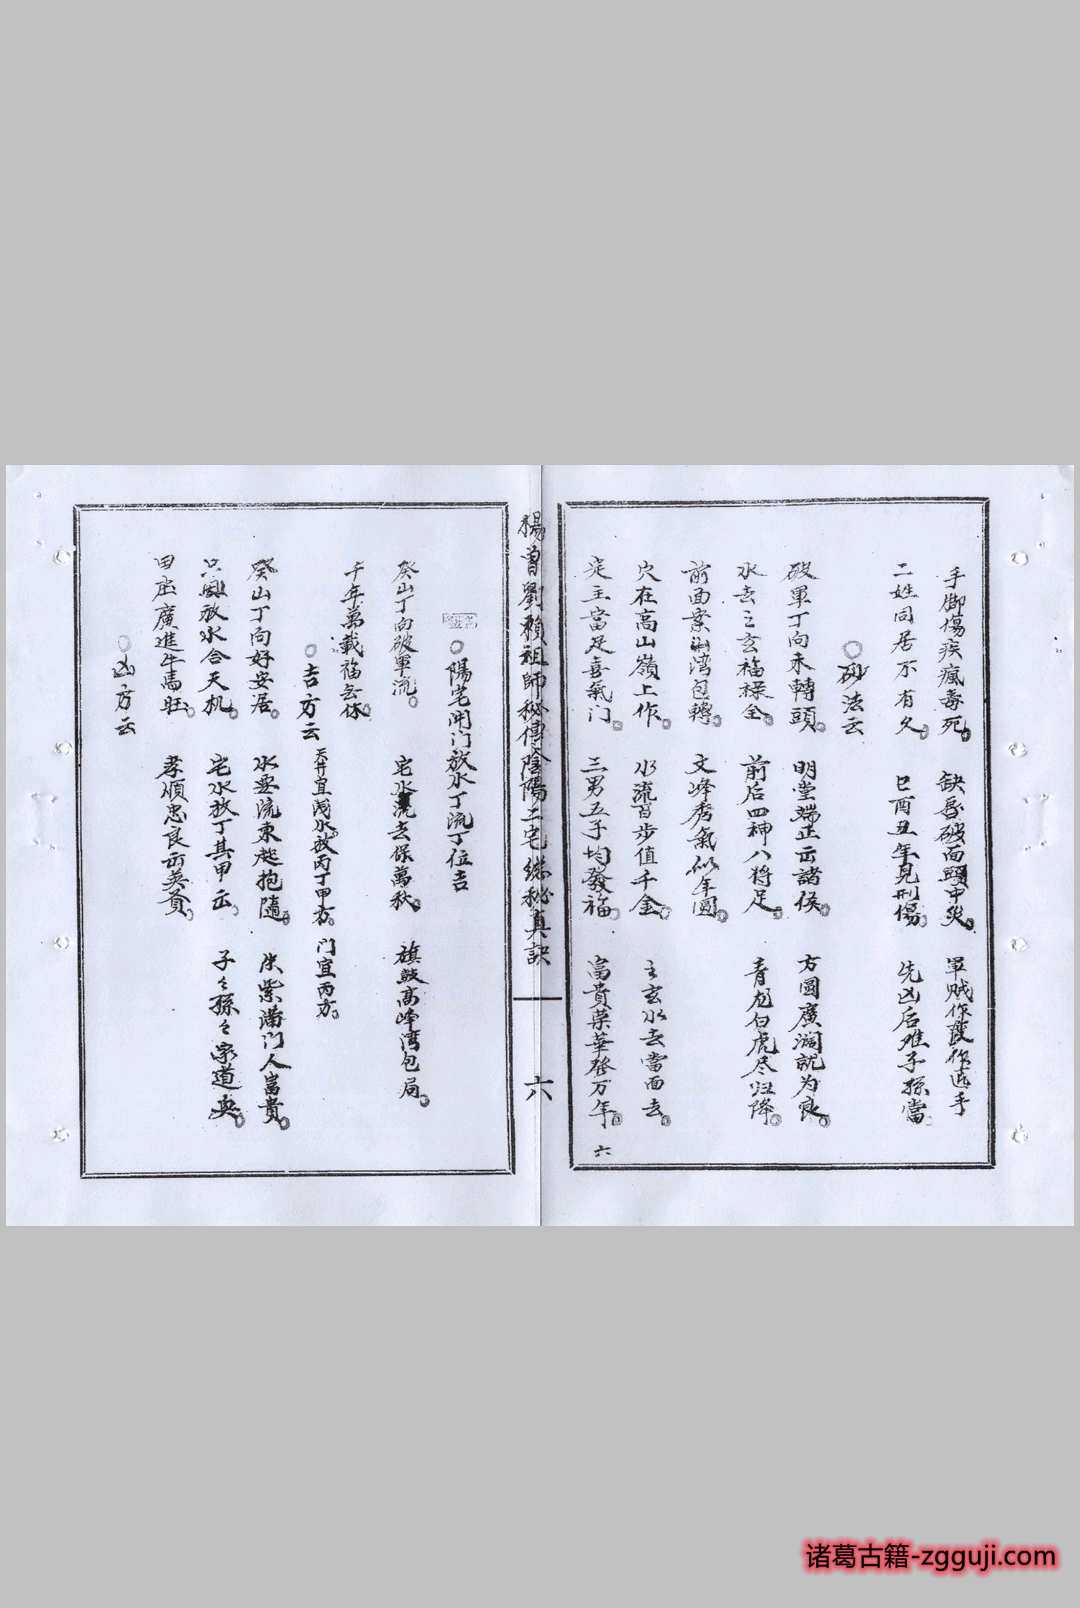 手脚傷疾瘋毒死 缺唇破面頭中災 軍賊作 作 手
二姓同居不有久 巳酉丑年見刑傷 先凶后难子孫當
砂法云
破軍丁向禾轉頭 明堂端正出諸侯 方圓廣濶說为良
水去之玄福祿全 前后四神八将足 青龙白虎尽归降
前面案山湾包轉 文峰秀氣似年圓
穴在高山嶺上作 水流百步值千金 之玄水去當面去
定主當足喜氣门 三男五子均發福 富貴荣華發万年
六
楊曾劉賴祖師秘傳陰陽二宅総秘真訣
六
陽宅開门放水丁流丁位吉
癸山丁向破軍流 宅水流去保萬秋 旗鼓高峰湾包局
千年萬載福无休
吉方云 天井宜浅水放丙丁甲方 门宜丙方
癸山丁向好安居 水要流東 抱隨 朱紫滿门人富貴
只 放水合天机 宅水放丁其甲云 子々孫々 道
田庄廣進牛馬旺 孝順忠良出英贤
凶方云
诸葛古籍-zgguji.com